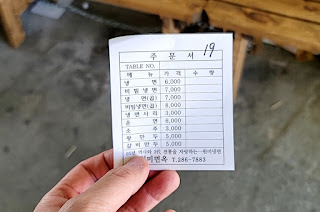 주 문 서 19
TABLE NO.
메 뉴 가 격 수 량
냉 면 6,000
비빔냉면 7,000
냉 면(곱) 7,000
비빔냉면(곱) 8,000
냉면사리 3,000
온 면 6,000
소 주 3,000
왕 만 두 5,000
갈비만두 5,000
전통을 자랑하는
면옥 T.286-7883